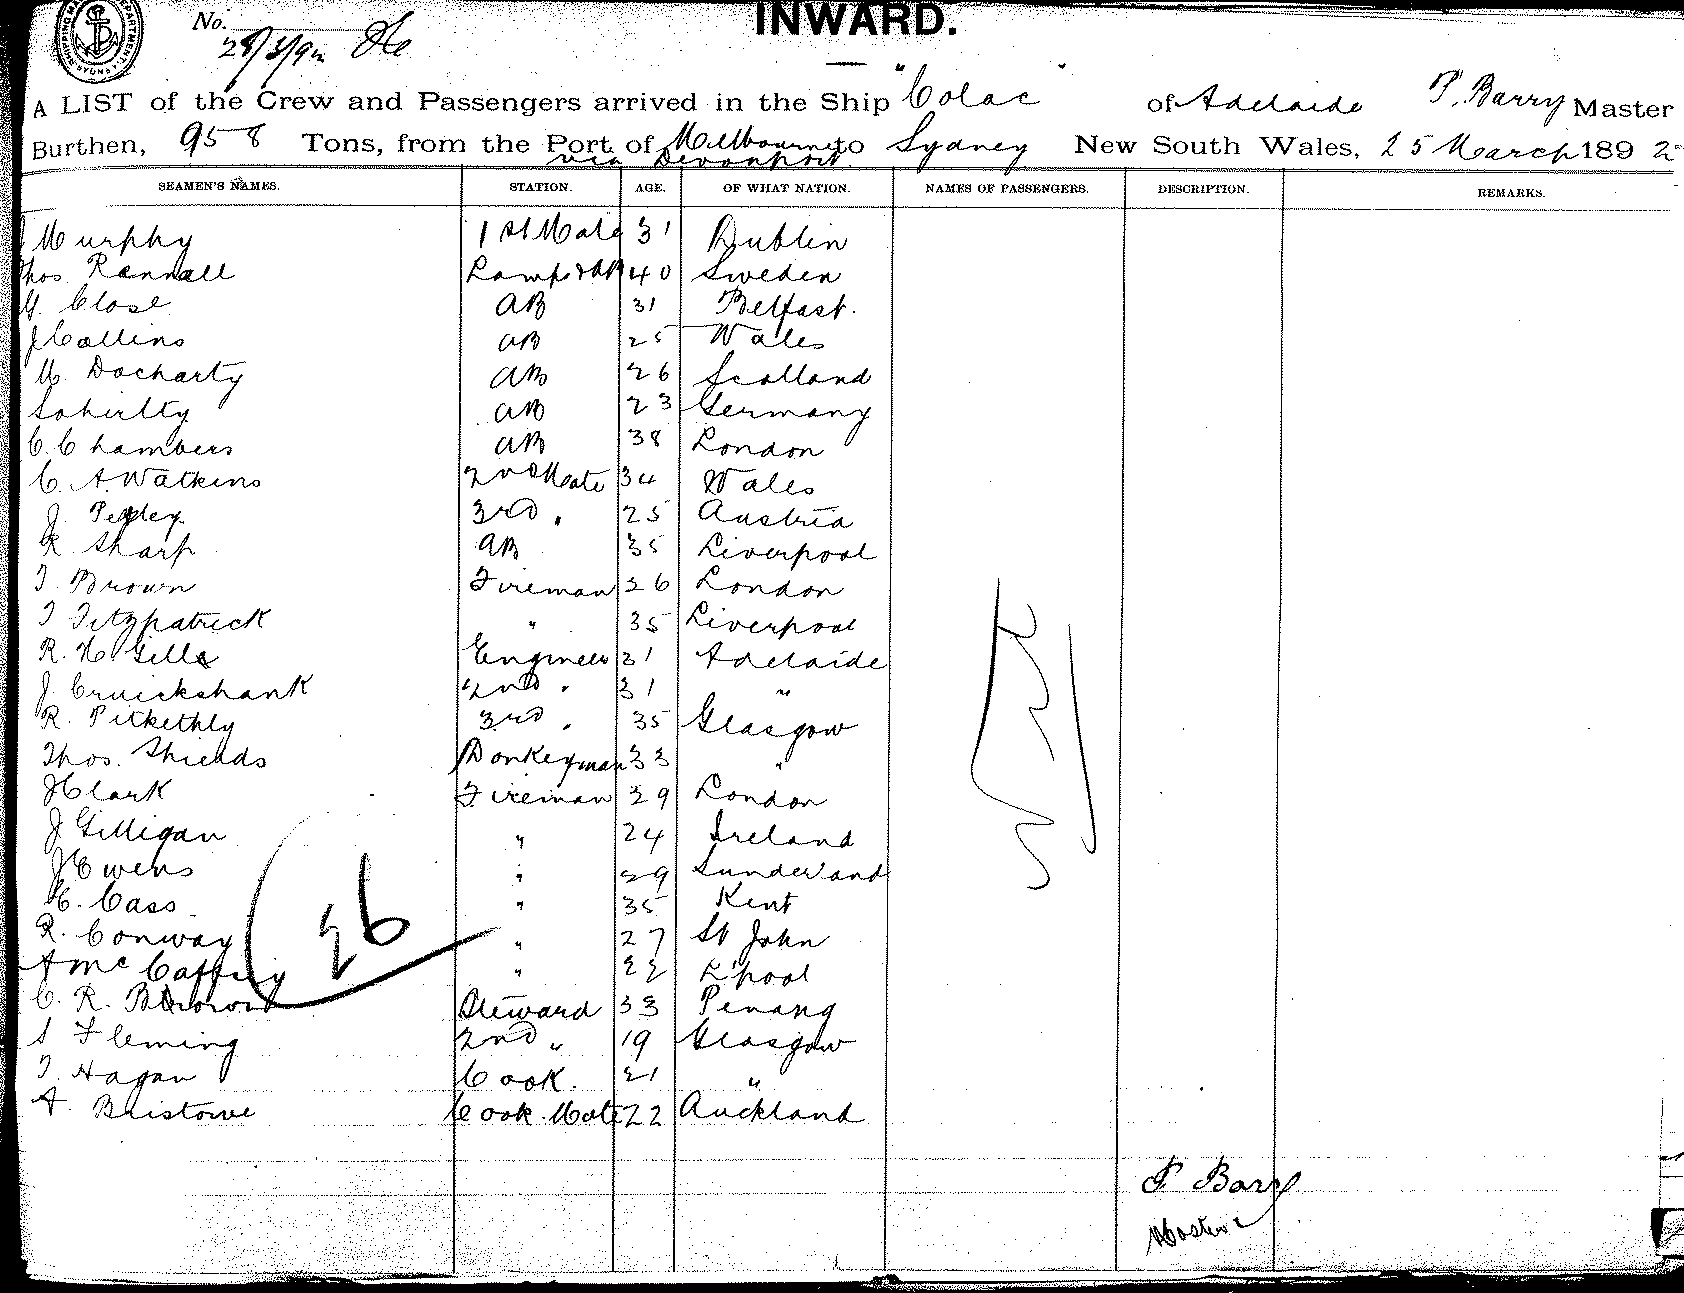 INWARD.
No.
A LIST of the Crew and Passengers arrived in the Ship "Colac" of Adelaide P. Barry Master
Burthen, 958 Tons, from the Port of Melbourne to Sydney New South Wales, 25 March 1892
via Devonport
SEAMEN'S NAMES. STATION. AGE. OF WHAT NATION. NAMES OF PASSENGERS. DESCRIPTION. REMARKS.
Murphy 1st Mate 31 Dublin
Thos Rennall Lamps & AB 40 Sweden
G. Close AB 31 Belfast.
J Collins AB 25 Wales
M. Docharty AB 26 Scotland
AB 23 Germany
C. Chambers AB 38 London
C. A. Watkins 2nd Mate 34 Wales
J. 3rd " 25 Austria
R Sharp AB 35 Liverpool
T. Brown Fireman 26 London
T Fitzpatrick " 35 Liverpool
R. H. Gills Engineer 31 Adelaide
J. Cruickshank 2nd " 31 "
R. Pitkethly 3rd " 35 Glasgow
Thos. Shields Donkeyman 33 "
J Clark Fireman 29 London
J Gilligan " 24 Ireland
J Owens " 29 Sunderland
H. Cass " 35 Kent
R. Conway " 27 St John
A McCaffrey " 22 L'pool
C. R. Steward 33 Penang
S Fleming 2nd " 19 Glasgow
T. Hagan Cook. 21 "
A. Bristowe Cook Mate 22 Auckland
26
P Barry
Master